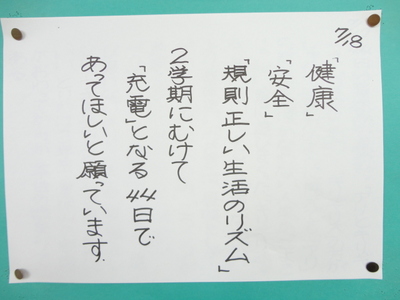 7/18
「健康」
「安全」
「規則正しい生活のリズム」
2学期にむけて
「充電」となる44日で
あってほしいと願っています。